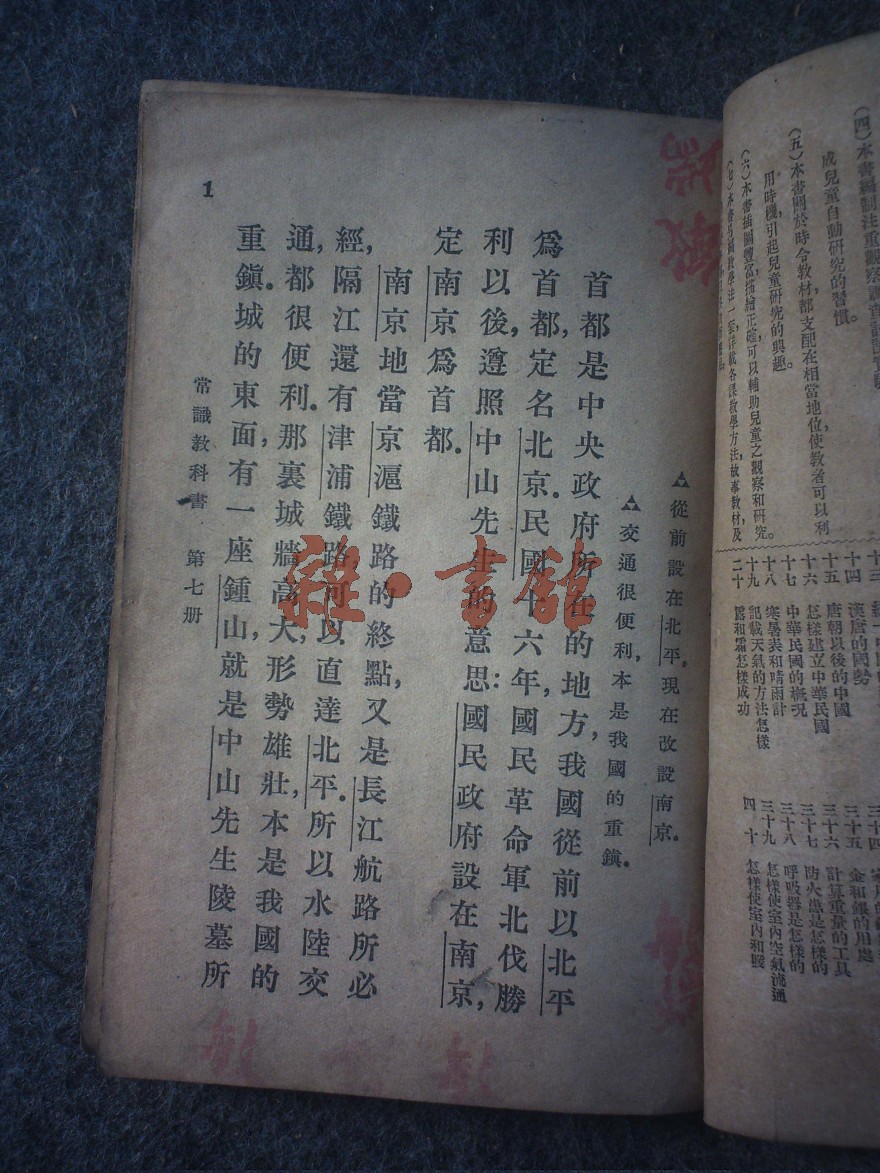 (四)本書編制注重觀察
成兒童自動研究的習慣。
(五)本書關於時令教材都支配在相當地位使教者可以利
用時機引起兒童研究的興趣。
(六)本書插圖豐富描繪正確可以輔助兒童之觀察和研究。
教學法一套詳載各課教學方法故事教材及
十三
十四 漢唐的國勢
十五 唐朝以後的中國
十六 怎樣建立中華民國
十七 中華民國的概況
十八 寒暑表和晴雨計
十九 記載天氣的方法怎樣
二十 露和霜怎樣成功
三十四
三十五 金和銀的用處
三十六 計算重量的工具
三十七 防火應是怎樣的
三十八 呼吸器是怎樣的
三十九 怎樣使室內空氣流通
四十 怎樣使室內和暖
△從前設在北平,現在改設南京。
△交通很便利,本是我國的重鎭。
首都是中央政府所在的地方,我國從前以北平
爲首都,定名北京。民國十六年,國民革命軍北伐勝
利以後,遵照中山先生的意思:國民政府設在南京,
定南京爲首都。
南京地當京滬鐵路的終點,又是長江航路所必
經,隔江還有津浦鐵路,可以直達北平。所以水陸交
通,都很便利。那裏城牆高大,形勢雄壯,本是我國的
重鎭。城的東面,有一座鍾山,就是中山先生陵墓所
常識教科書 第七册
1
雜·書館